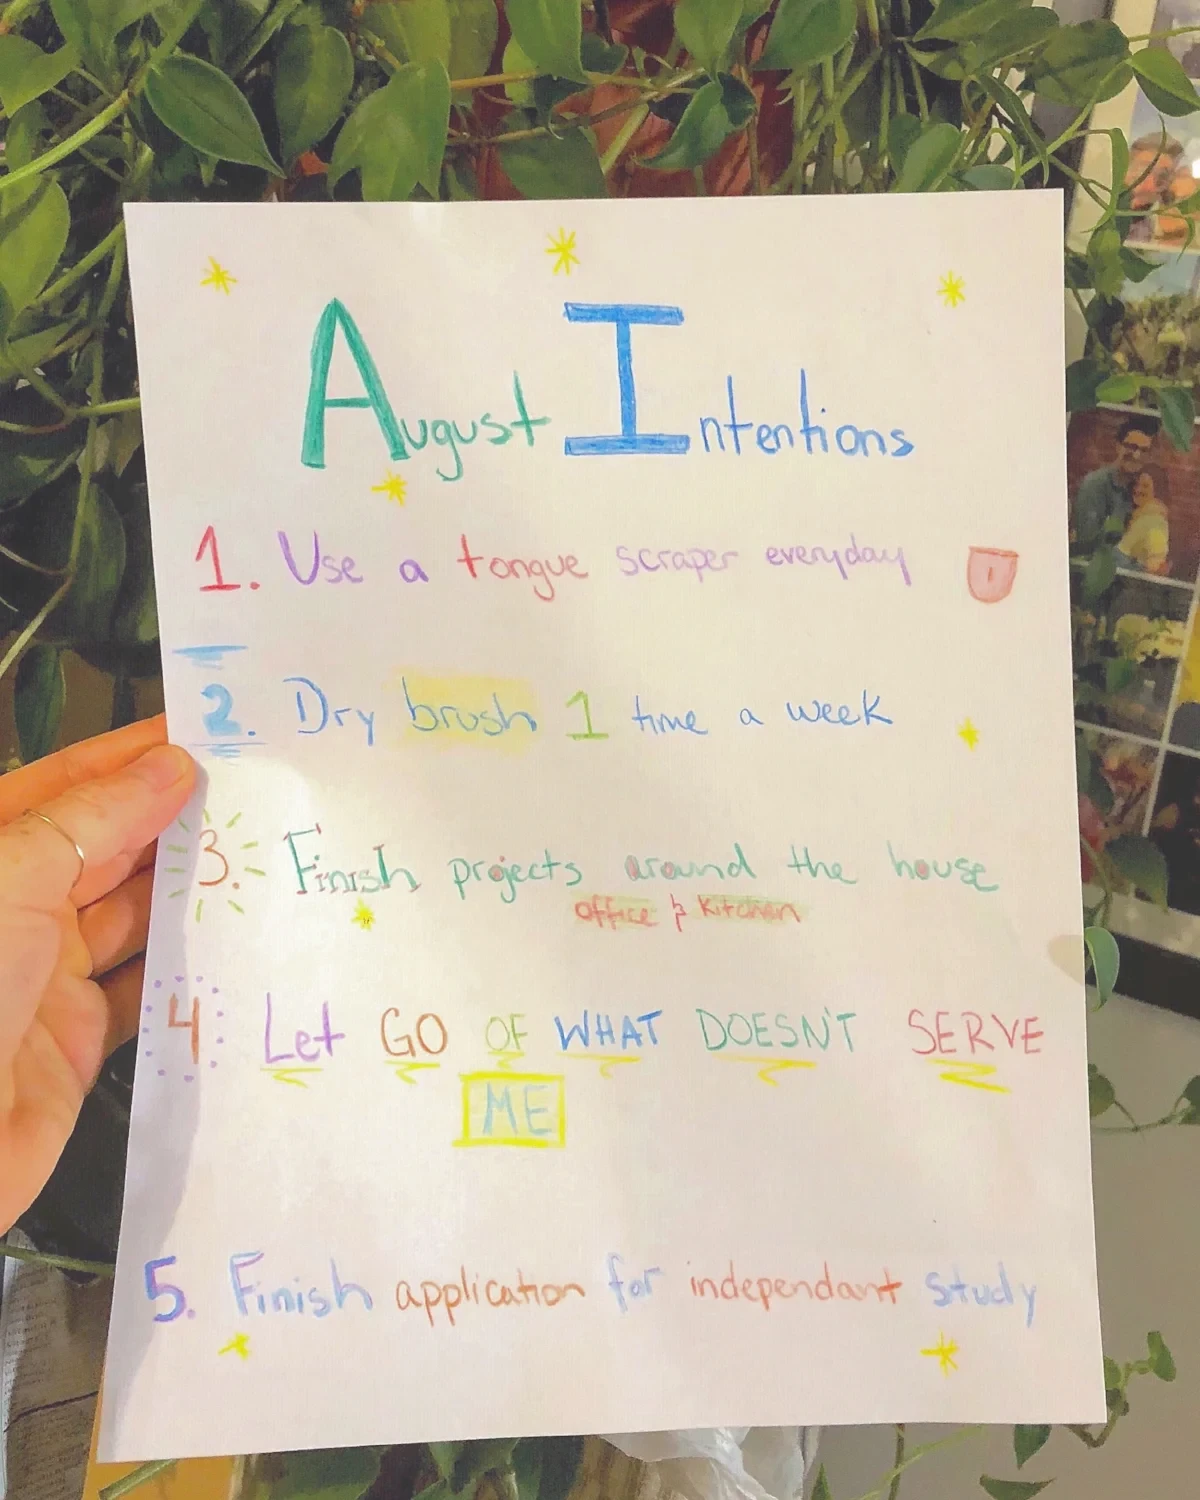 August Intentions
1. Use a tongue scraper everyday
2. Dry brush 1 time a week
3. Finish projects around the house
office & kitchen
4. Let GO OF WHAT DOESN'T SERVE
ME
5. Finish application for independant study